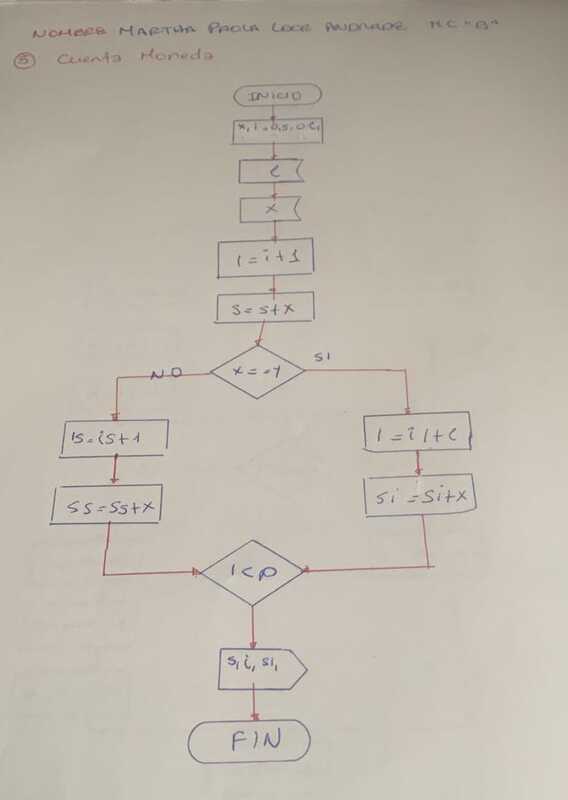 NOMBRE MARTHA PAOLA LOOR ANDRADE MC "B"
⑤ Cuenta Moneda
INICIO
x, i = 0, s, 0 C,
C
x
I = i + 1
S = S + X
NO
SI
IS = iS + 1
SS = SS + X
Si = Si + X
I < p
S, i, SI,
FIN